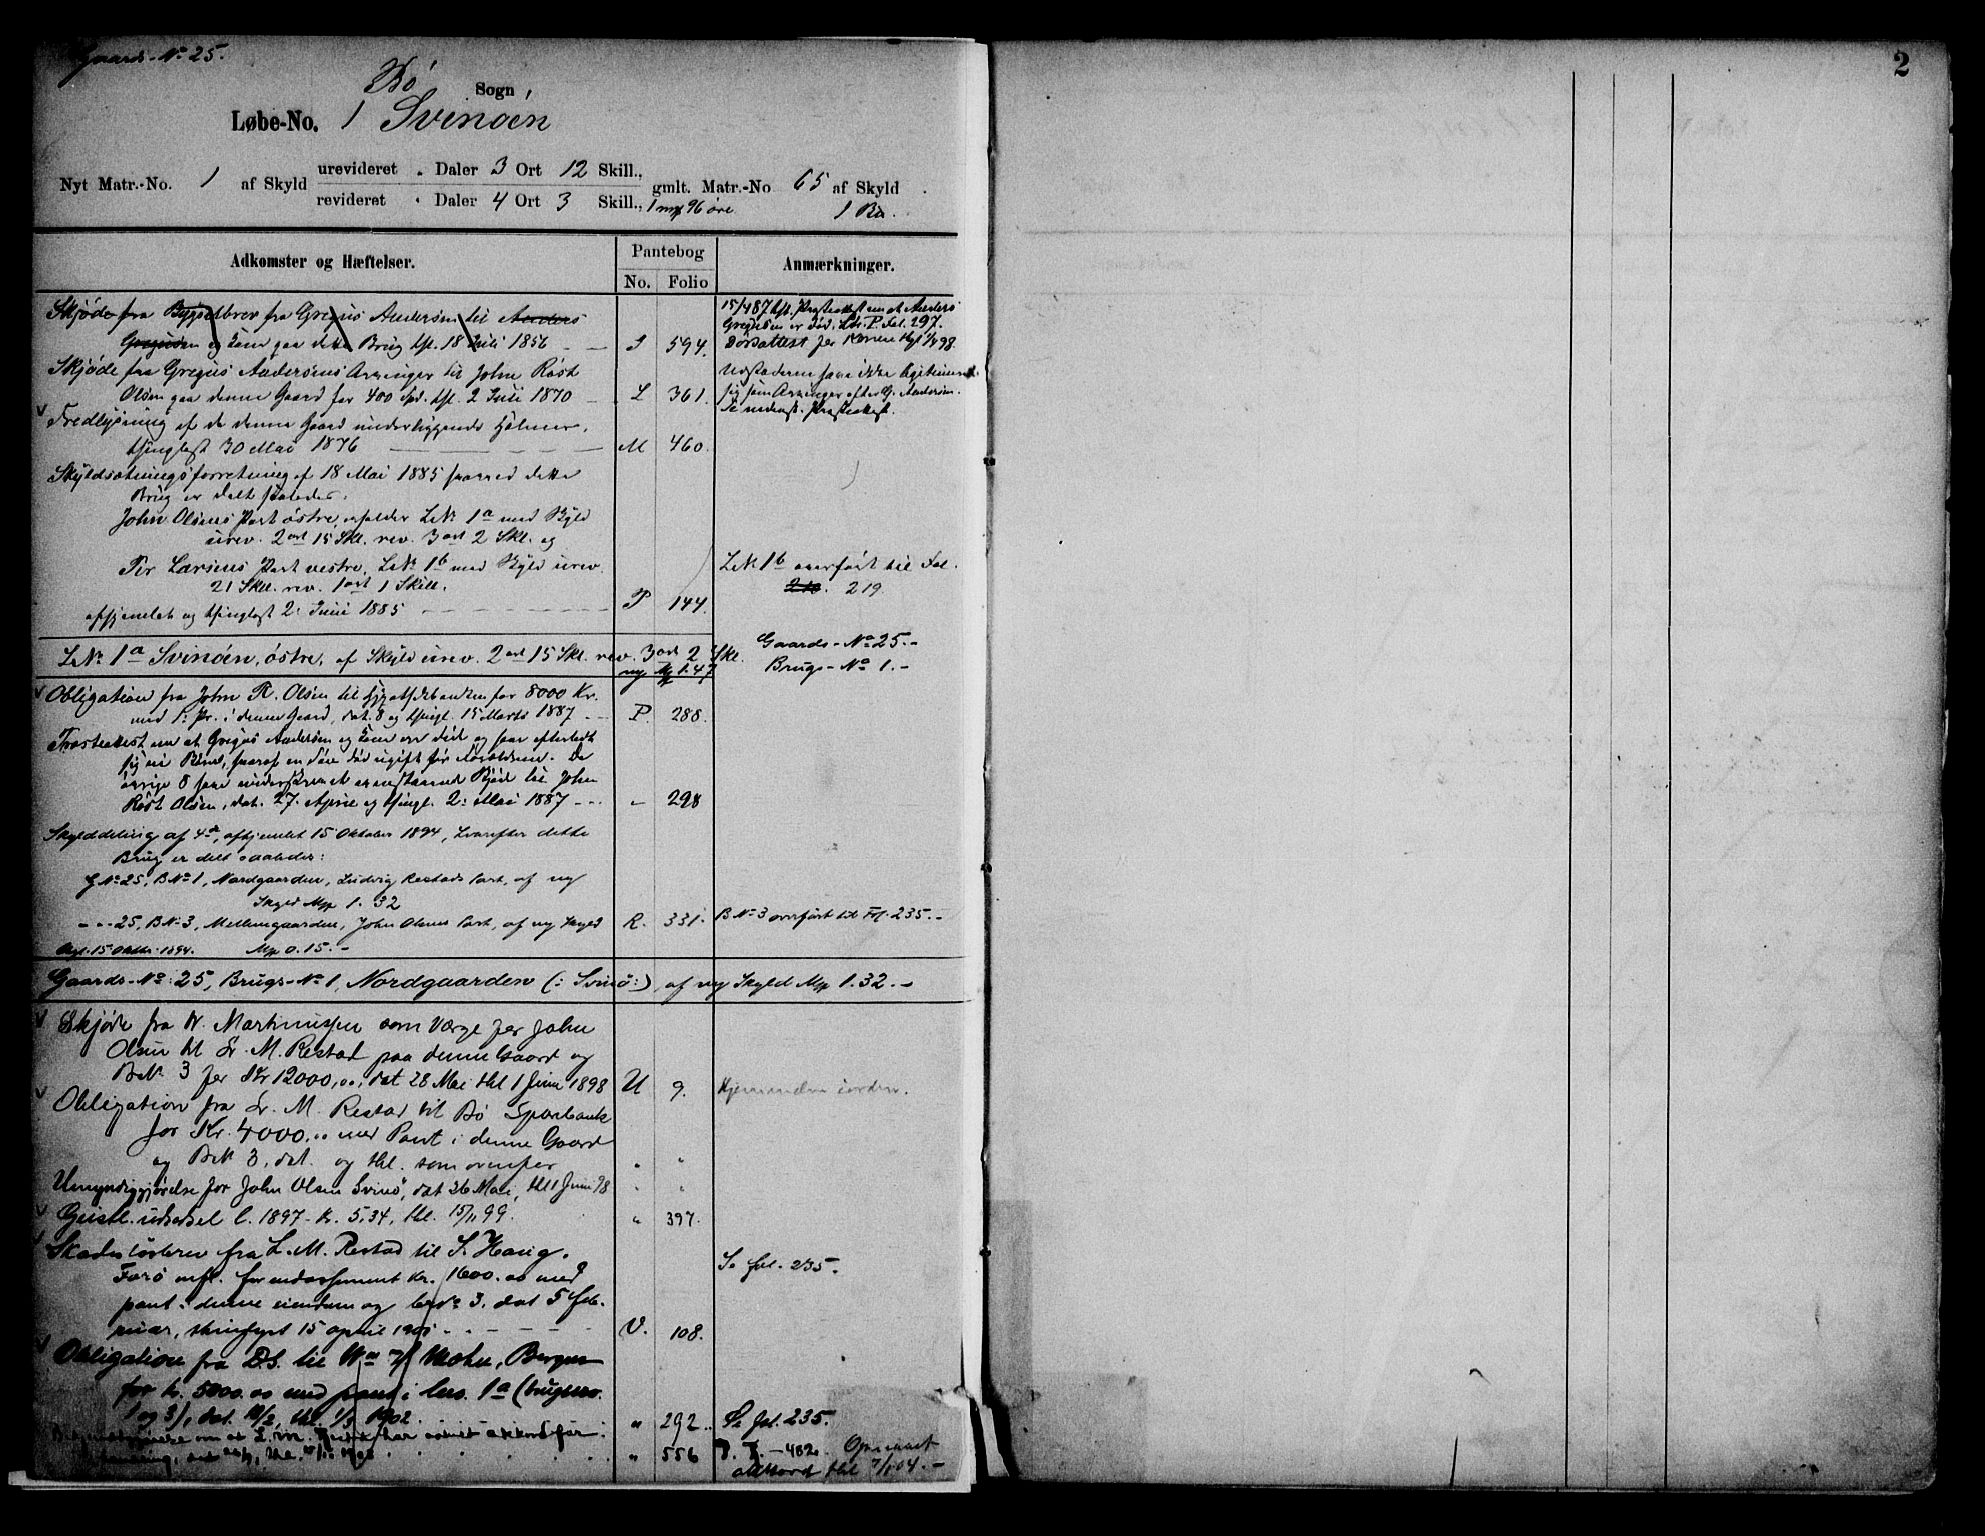 Gaards-No 25.
2
Bö Sogn,
Løbe-No. 1 Svinöen
Nyt Matr.-No. 1 af Skyld urevideret " Daler 3 Ort 12 Skill., gmlt. Matr.-No 65 af Skyld
revideret " Daler 4 Ort 3 Skill., 1 mk 96 öre
Adkomster og Hæftelser. Pantebog Anmærkninger.
No. Folio
Skjöde fra Bygselbrev fra Gregus Andersen til Anders
Gregusen og Kone paa dette Brug thl. 18 Juli 1856 S 594.
15/4 87 thl. Prosteattest om at Anders
Gregusen er död. Ltr. P. Fol. 297.
Skjöde fra Gregus Andersens Arvinger til John Röst
Olsen paa denne Gaard for 400 Spd. thl. 2 Juli 1870 L 361.
Udstederne have ikke legitimeret
sig som Arvinger efter G. Andersen.
Se nedenst. Prosteattest.
Fredlysning af de denne Gaard underliggende Holmer,
thinglæst 30 Mai 1876 M 460.
Skyldsætningsforretning af 18 Mai 1885 hvorved dette
Brug er delt saaledes:
John Olsens Part östre, beholder L.No. 1a med Skyld
urev. 2 ort 15 Skl. rev. 3 ort 2 Skl. og
Per Larsens Part vestre, L.No. 1b med Skyld urev.
21 Skll. rev. 1 ort 1 Skill.
afhjemlet og thinglæst 2. Juni 1885 P 144.
L.No. 1b overfört til Fol.
210. 219.
L.No. 1a Svinöen, östre, af Skyld urev. 2 ort 15 Skl. rev. 3 ort 2 Skl.
ny Mk 1.47
Gaards-No 25.-
Brugs-No 1.-
Obligation fra John R. Olsen til Hypothekbanken for 8000 Kr.
med 1. Pr. i denne Gaard, dat. 8 og thingl. 15 Marts 1887 P. 288.
Prosteattest om at Gregus Andersen og Kone ere död og have efterladt
sig ni Börn, hvoraf en Sön död ugift för Forældrene. De
övrige 8 have underskrevet ovenstaaende Skjöde til John
Röst Olsen, dat. 27. April og thingl. 2. Mai 1887 " 298
Skylddeling af 4de, afhjemlet 15 Oktober 1894, hvorefter dette
Brug er delt saaledes:
G.No 25, B.No 1, Nordgaarden, Ludvig Restads Part, af ny
Skyld Mk 1.32
" " 25, B.No 3, Mellemgaarden, John Olsens Part, af ny Skyld R. 331.
Thgl. 15 Oktbr. 1894. Mk 0.15.-
B.No 3 overfört til Fol. 235.-
Gaards-No: 25, Brugs-No 1, Nordgaarden (: Svinö:), af ny Skyld Mk 1.32.-
Skjöde fra W. Martinussen som Værge for John
Olsen til L. M. Restad paa denne Gaard og
B.No. 3 for Kr 12000,00, dat 28 Mai thl 1 Juni 1898 U 9.
Hjemmelen iorden.
Obligation fra L. M. Restad til Bö Sparebank
for Kr. 4000.00 med Pant i denne Gaard
og B.No. 3, dat. og thl. som ovenfor " "
Umyndiggjörelse for John Olsen Svinö, dat 26 Mai, thl 1 Juni 98 " "
Geistl. udedsel l. 1897 - kr. 5,34, thl. 15/11 99. " 397.
Skadeslösbrev fra L. M. Restad til S. Haug,
Forö mfl. for endossement kr. 1600.00 med
pant i denne eiendom og brno 3. dat 5 feb-
ruar, thinglyst 15 april 1901 V. 108.
Se fol. 235.
Obligation fra D.S. til Wm Mohn, Bergen
for kr. 5000.00 med pant i lno. 1a (brugsno.
1 og 3), dat. 12/2, thl. 1/3 1902. " 292.
Se fol. 235.
om at L. M. Restad har aabnet akkordfor-
handling, 1903 " 556
Ophævet
akkord thl 7/1 04.-